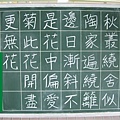 秋叢繞舍似
陶家遍繞籬
邊日漸斜不
是花中偏愛
菊此花開盡
更無花